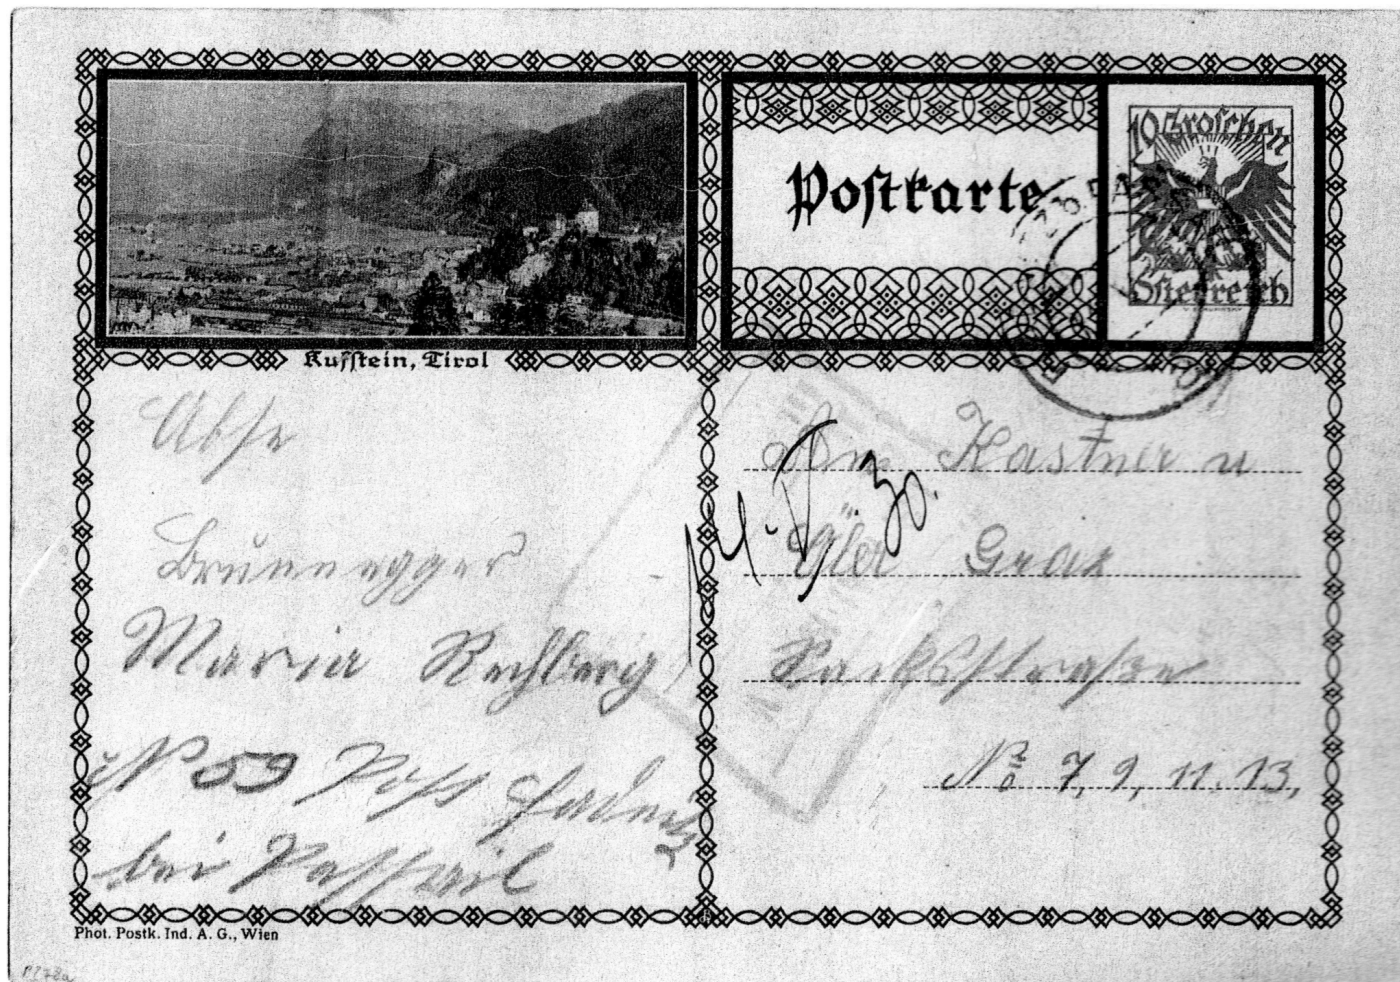 Kufstein, Tirol
Postkarte
10 Groschen
Österreich
Abse
Brunnegger
Maria Rechberg
N 59 Post
bei Passail
Am Kastner u
Öler Graz
Sackstraße
No 7, 9, 11. 13,
14. V. 30.
Phot. Postk. Ind. A. G., Wien